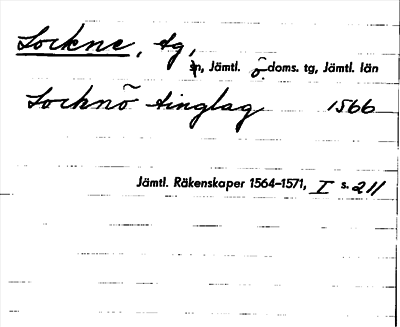 Lockne, tg,
sn, Jämtl. ö. doms. tg, Jämtl. län
Locknö tinglag 1566
Jämtl. Räkenskaper 1564-1571, I s. 211